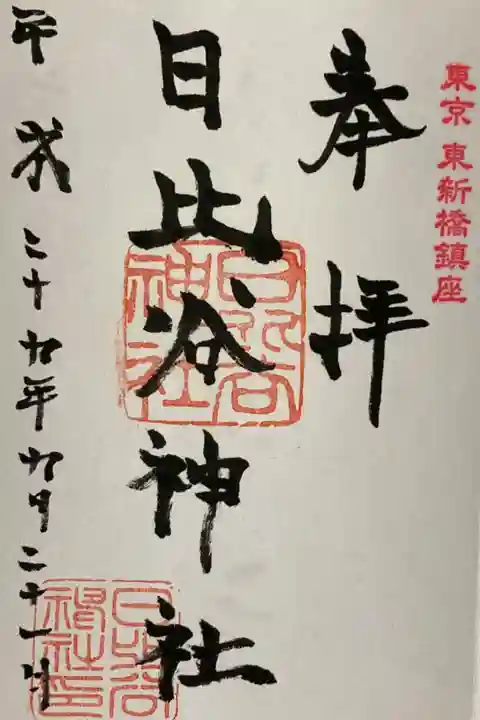 東京 東新橋鎮座
奉拝
日比谷神社
平成二十九年九月二十一日
日比谷神社
日比谷神社印